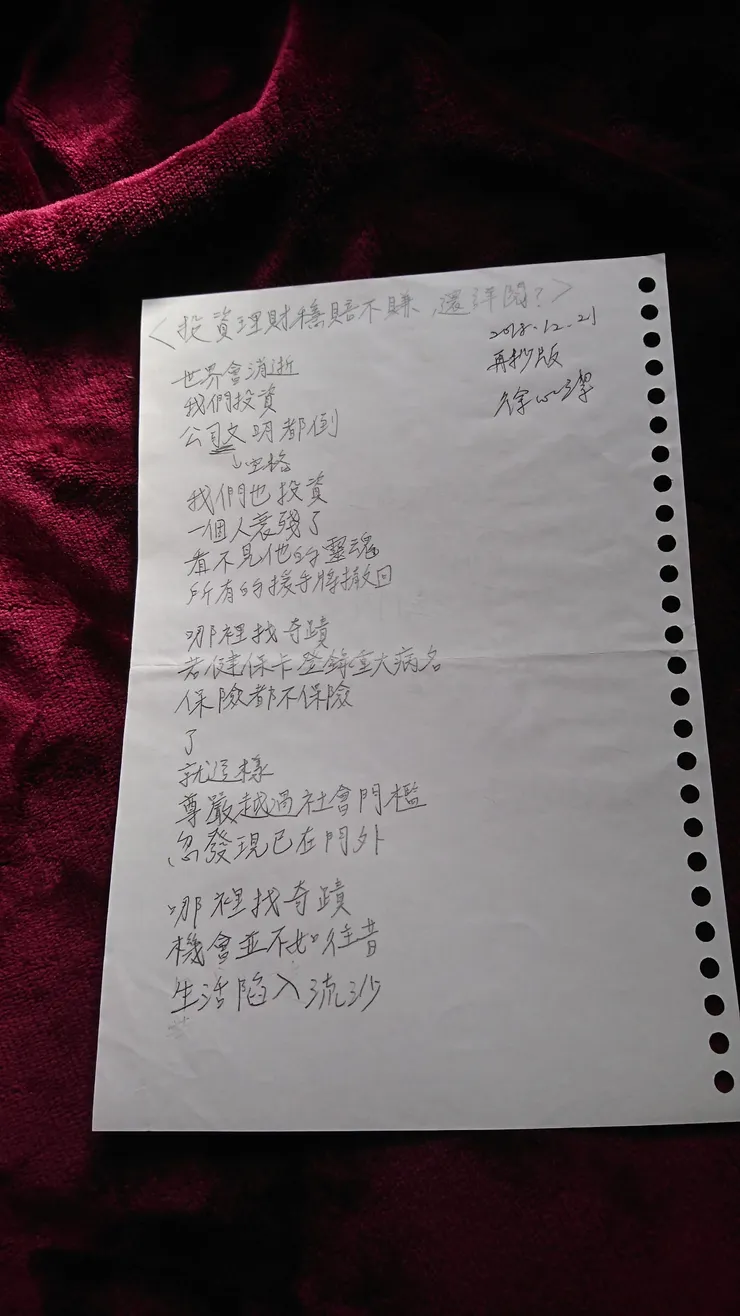 〈投資理財穩賠不賺,還詳閱?〉
2018.12.21
再抄版
徐
世界會消逝
我們投資
公司文明都倒
↓空格
我們也投資
一個人衰殘了
看不見他的靈魂
所有的援手將撤回
哪裡找奇蹟
若健保卡登錄重大病名
保險都不保險
了
就這樣
尊嚴越過社會門檻
忽發現已在門外
哪裡找奇蹟
機會並不如往昔
生活陷入流沙